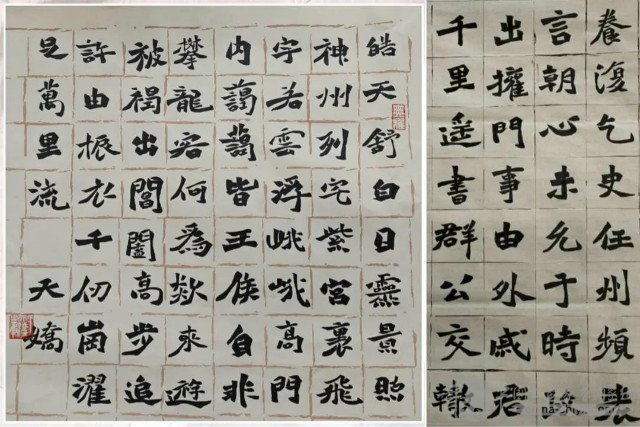 皓天舒白日靈景照
神州列宅紫宮裏飛
宇若雲浮峨峨高門
内藹藹皆王侯自非
攀龍客何爲欻來遊
被褐出閶闔高步追
許由振衣千仞崗濯
足萬里流
天嬌
養復乞史任州頻表
言朝心未允于時
出擁門事由外戚君
千里遥書群公交轍